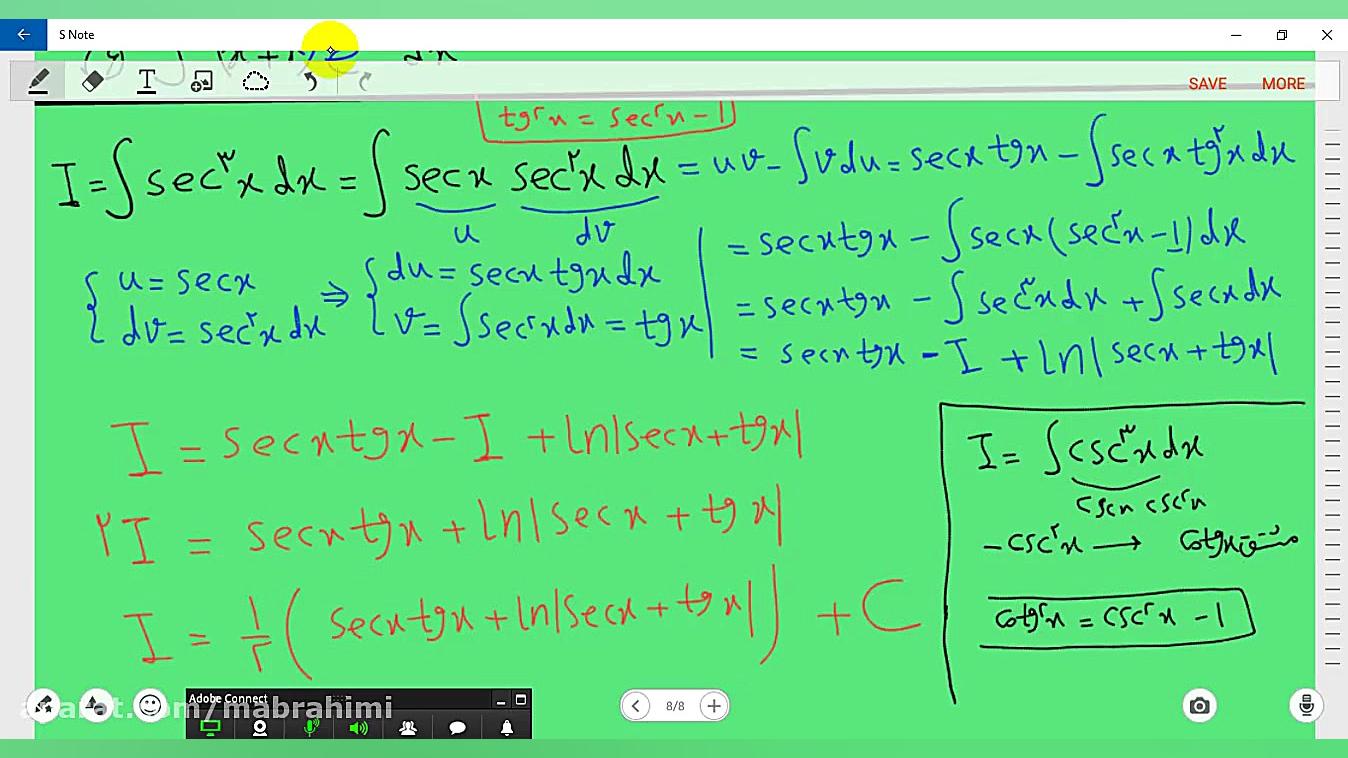 S Note
SAVE MORE
tg²x = sec²x - 1
I = ∫ sec³x dx = ∫ secx sec²x dx = uv - ∫ v du = secx tgx - ∫ secx tg²x dx
u dv
= secx tgx - ∫ secx (sec²x - 1) dx
{ u = secx ⇒ { du = secx tgx dx
dv = sec²x dx v = ∫ sec²x dx = tgx
= secx tgx - ∫ sec³x dx + ∫ secx dx
= secx tgx - I + ln|secx + tgx|
I = secx tgx - I + ln|secx + tgx|
۲I = secx tgx + ln|secx + tgx|
I = ۱/۲ ( secx tgx + ln|secx + tgx| ) + C
I = ∫ csc³x dx
cscx csc²x
-csc²x → cotgx مشتق
cotg²x = csc²x - 1
Adobe Connect
aparat.com/mabrahimi
8/8